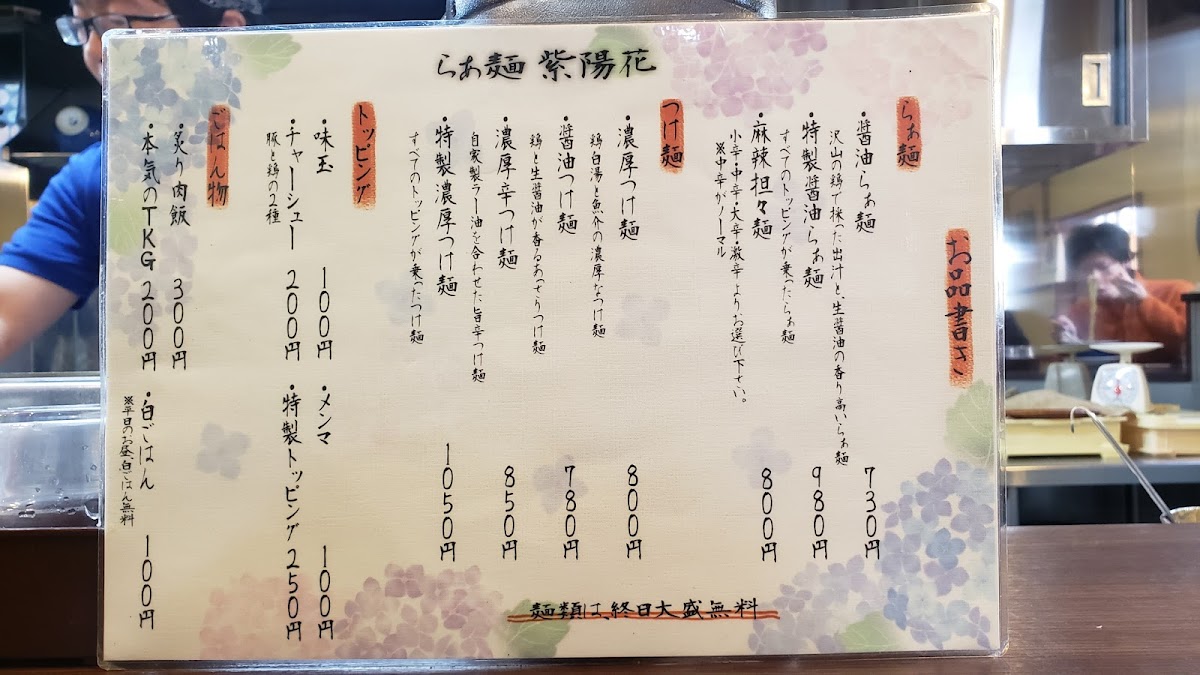 らぁ麺 紫陽花
お品書き
らぁ麺
・醤油らぁ麺 730円
沢山の鶏で採った出汁と、生醤油の香り高いらぁ麺
・特製醤油らぁ麺 980円
すべてのトッピングが乗ったらぁ麺
・麻辣担々麺 800円
小辛・中辛・大辛・激辛よりお選び下さい。
※中辛がノーマル
つけ麺
・濃厚つけ麺 800円
鶏白湯と魚介の濃厚なつけ麺
・醤油つけ麺 780円
鶏と生醤油が香るあっさりつけ麺
・濃厚辛つけ麺 850円
自家製ラー油を合わせた旨辛つけ麺
・特製濃厚つけ麺 1050円
すべてのトッピングが乗ったつけ麺
トッピング
・味玉 100円
・メンマ 100円
・チャーシュー 200円
豚と鶏の2種
・特製トッピング 250円
ごはん物
・炙り肉飯 300円
・本気のTKG 200円
・白ごはん 100円
※平日のお昼、白ごはん無料
麺類は、終日大盛無料